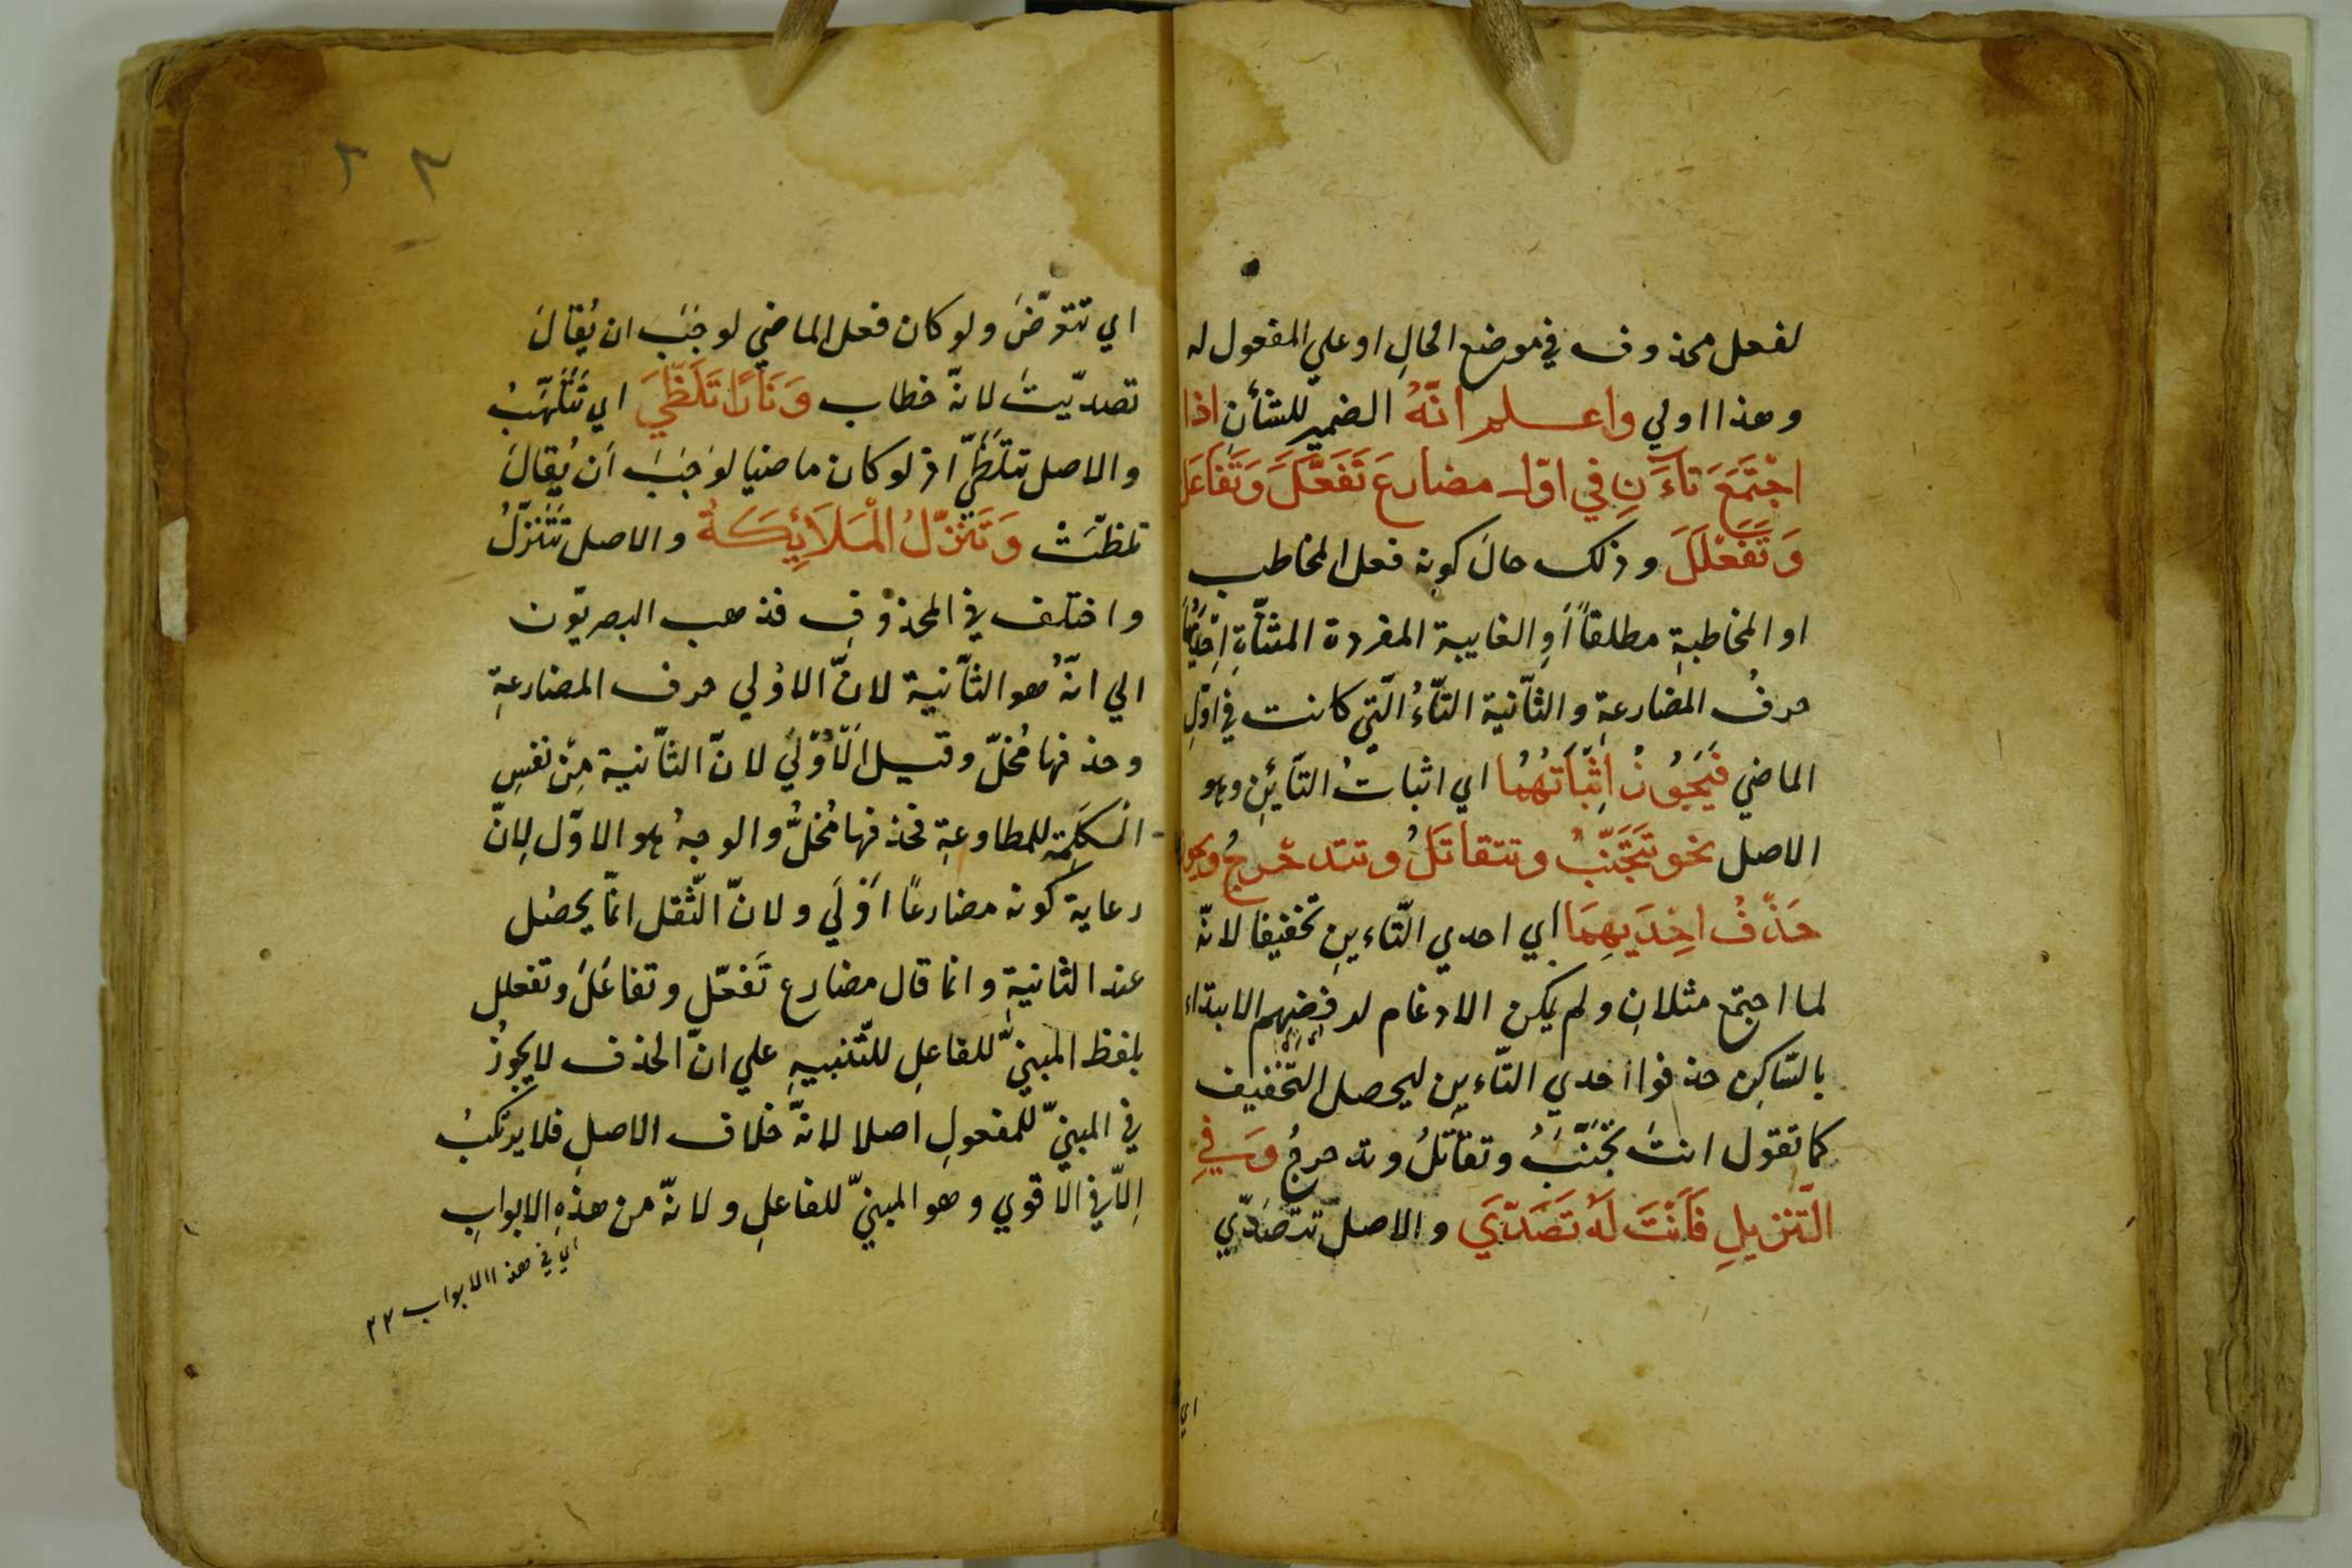 لفعل محذوف في موضع الحالِ او علي المفعول له
وهذا اولي واعلم انّهُ الضمير للشأن اذا
اجْتَمَعَ تاءَنِ في اوّل مضارعَ تَفَعَّلَ وَتَفَاعَلَ
وَتَفَعْلَلَ وذلك حالَ كونه فعل المخاطب
او المخاطبةِ مطلقاً أوِ الغايبة المفردة المثنّاةِ
حرفُ المضارعةِ والثّانية التّاءُ الّتي كانت في اوّلِ
الماضي فَيَجُوزُ اِثْبَاتُهُمَا اي اثباتُ التّائينِ وهو
الاصل نحو تَتَجَنَّبُ وتتقاتَلُ وتتدحْرجُ ويجوز
حَذْفُ اِحْدَيهِمَا اي احدي التّاءينِ تخفيفا لانّه
لما اجتمع مثلانِ ولم يكن الادغام لرفضِهِم الابتداء
بالسّاكِن حذفوا احدي التّاءينِ ليحصل التّخفيف
كما تقول انتَ تَجَنَّبُ وتقاتَلُ وتدحرجُ وَفي
التّنزيلِ فَاَنْتَ لَهُ تَصَدّيَ والاصل تتصَدّي
اي
اي تتعرّضَ ولو كان فعل الماضي لوجَبَ ان يُقالَ
تصدّيتَ لانّه خطاب وَنَارًا تَلَظّيَ اي تَتَلَهَّبُ
والاصل تتلَظّي اذ لو كان ماضيا لوَجَبَ اَن يُقالَ
تلظّتْ وَتَنَزَّلُ الْمَلَائِكَةُ والاصل تَتَنَزّلُ
واختلف في المحذوفِ فذهب البصريّون
الي انّهُ هو الثّانية لانّ الاوُلي حرف المضارعةِ
وحذفها مُخلّ وقيل الاُوْليَ لانّ الثّانية مِنْ نفسِ
الكلِمةِ للمطاوعةِ فحذفها مُخلٌّ والوجهُ هو الاوّل لِانّ
رعاية كونه مضارعًا اَوْليَ ولانّ الثّقل انمّا يحصُل
عند الثانيةِ وانما قال مضارع تَفعّل وتفاعَلَ وتفعلل
بلفظ المبنيّ للفاعلِ للتّنبيهِ علي انّ الحذف لا يجوزُ
في المبنيّ للمفعولِ اصلا لانّهَ خلاف الاصلِ فلا يرتكبُ
اِلّا في الاقوي وهو المبنيّ للفاعلِ ولانّه من هذهِ الابوابِ
اي في هذا الابواب ٢٢